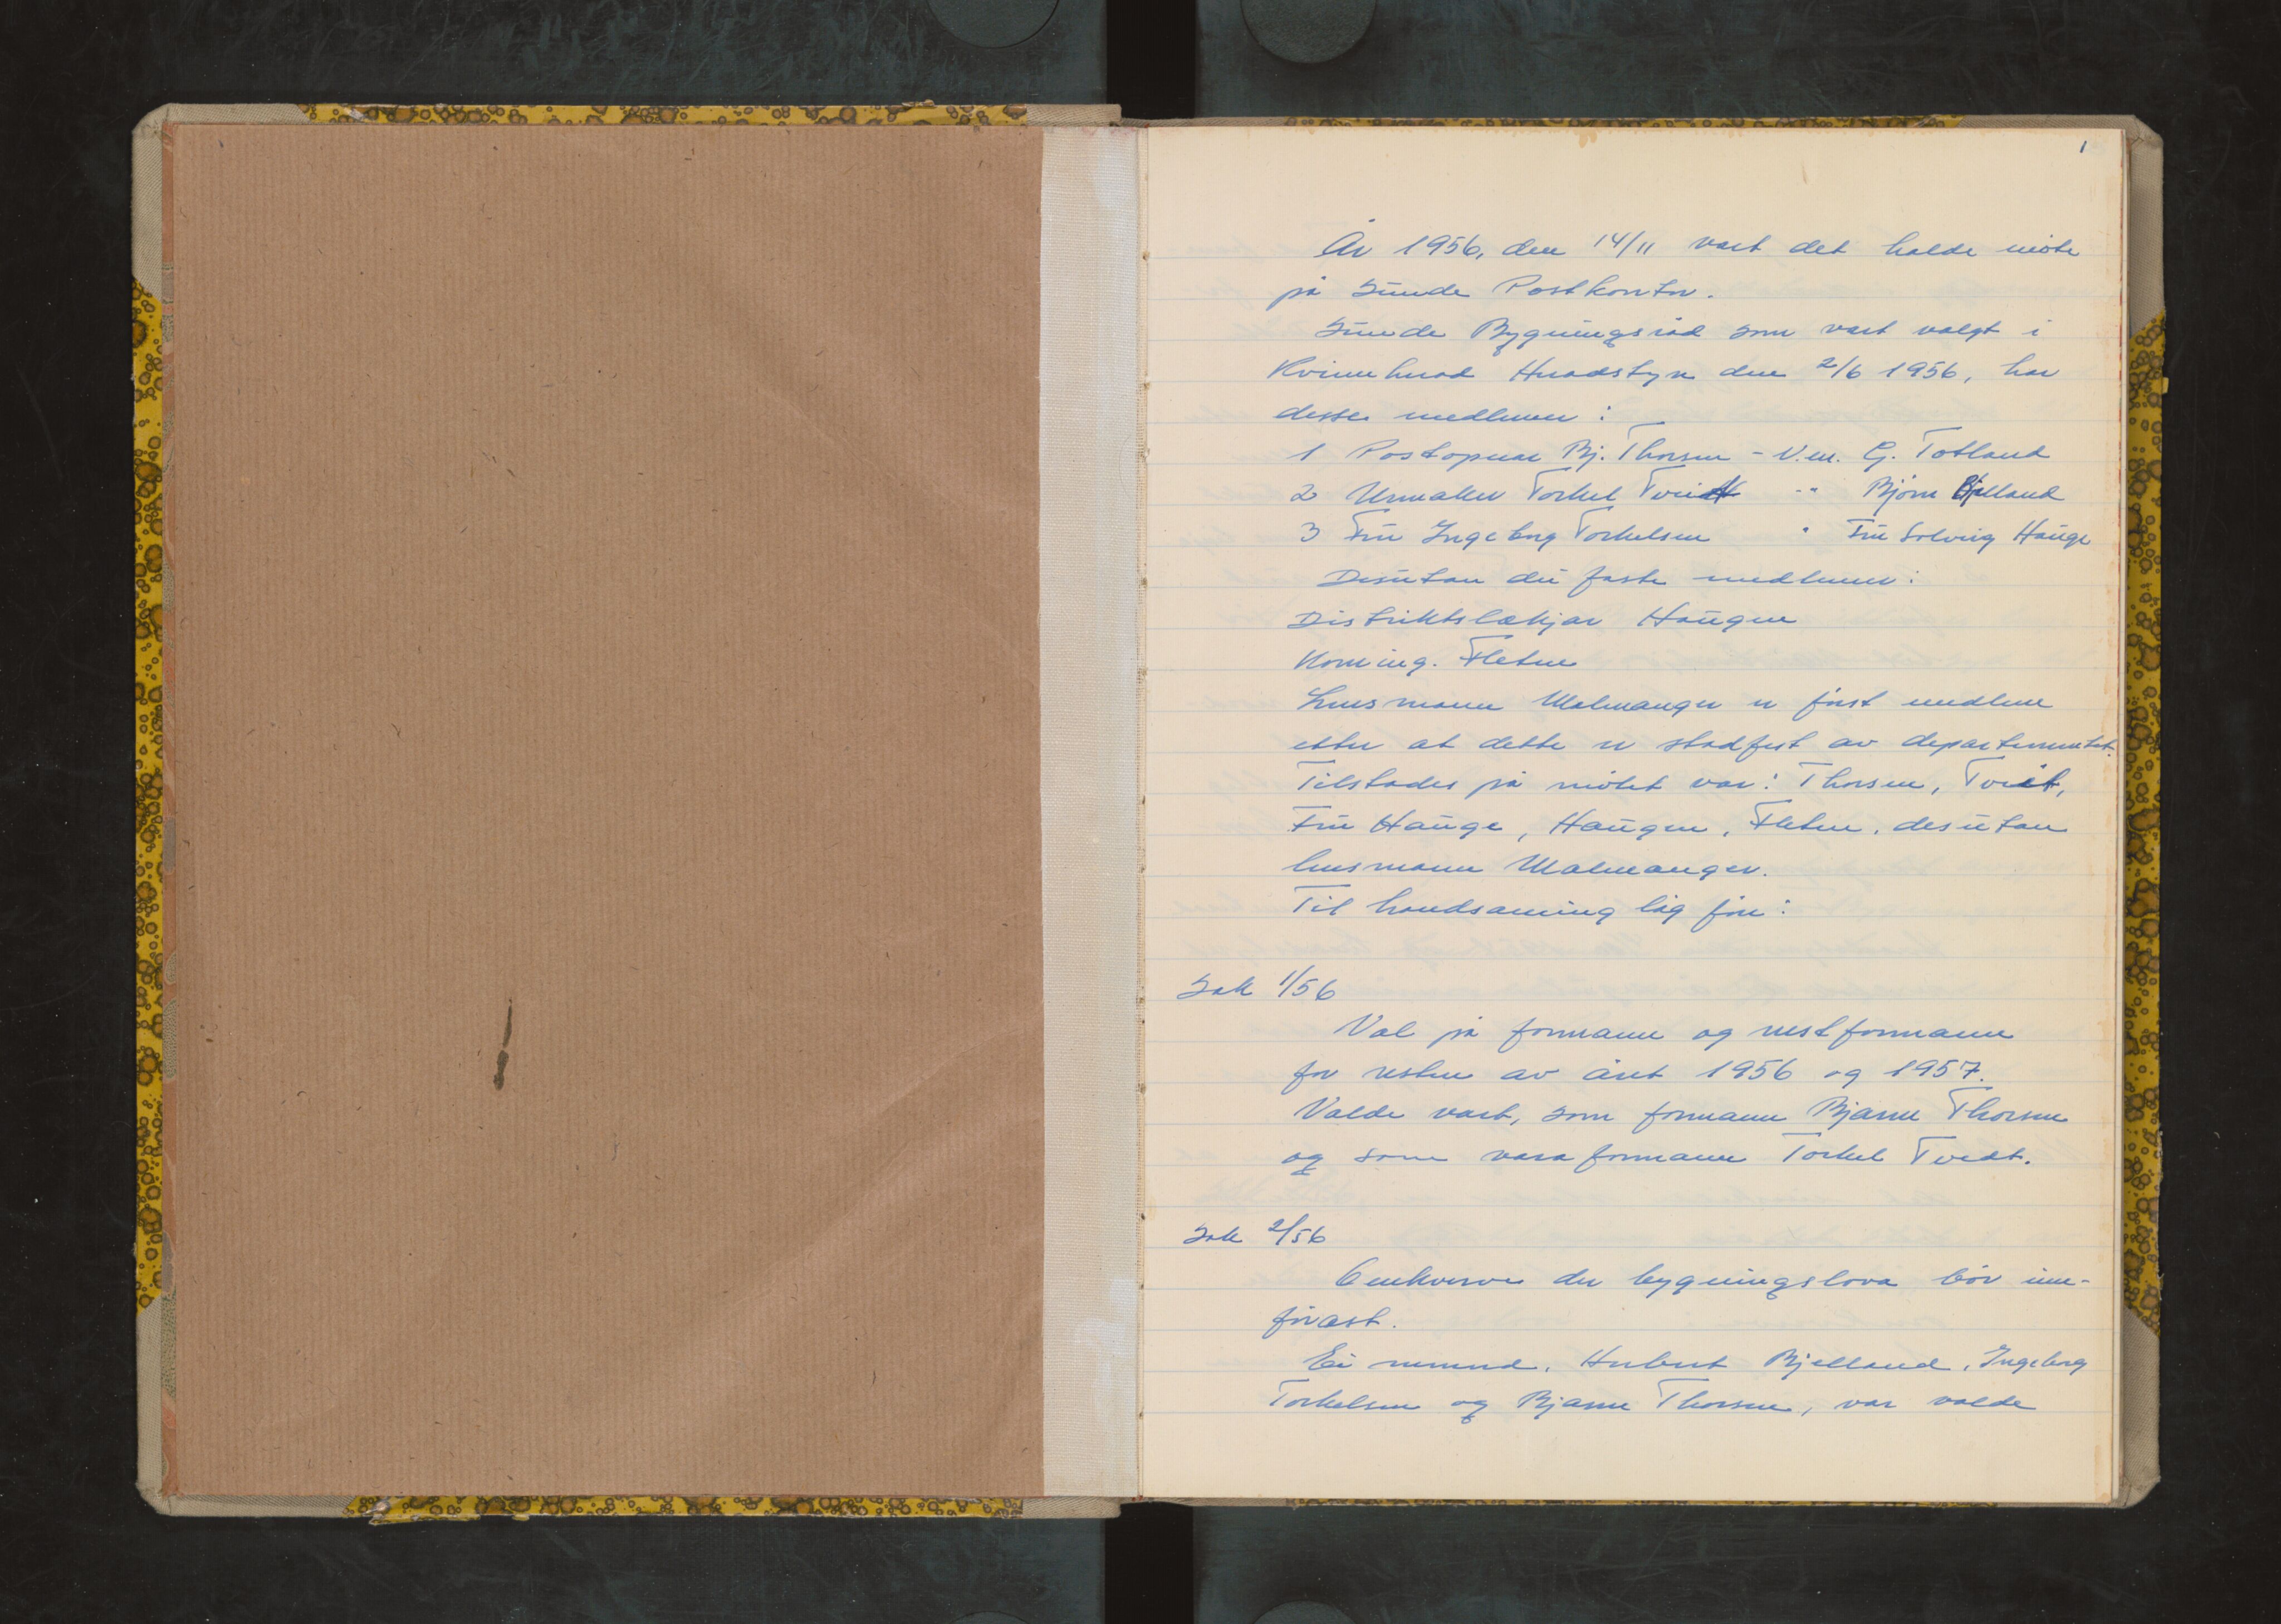 1
År 1956, den 14/11 vart det halde møte
på Sunde Postkontor.
Sunde Bygningsråd som vart valgt i
Kvinnherad Heradstyre den 2/6 1956, har
desse medlemer:
1 Postopnar Bj. Thorsen - V.m. G. Totland
2 Urmaker Torkel Tveit -"- Bjørn Bjelland
3 Fru Ingeborg Torkelsen " Fru Solveig Hauge
Desutan dei faste medlemer:
Distriktslækjar Haugen
Kom.ing. Fleten
Lensmann Malmanger er først medlem
etter at dette er stadfest av departementet.
Tilstades på møtet var: Thorsen, Tveit,
Fru Hauge, Haugen, Fleten, desutan
lensmann Malmanger.
Til handsaming låg føre:
Sak 1/56
Val på formann og nestformann
for resten av året 1956 og 1957.
Valde vart, som formann Bjarne Thorsen
og som varaformann Torkel Tvedt.
Sak 2/56
Omkverve der bygningslova bør inn-
førast.
Ei nemnd, Herbert Bjelland, Ingeborg
Torkelsen og Bjarne Thorsen, var valde